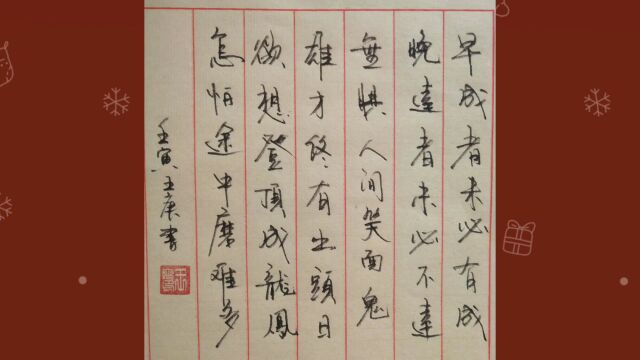 早成者未必有成
晚達者未必不達
無惧人间笑面鬼
雄才终有出頭日
欲想登頂成龍鳳
怎怕途中磨难多
壬寅王書